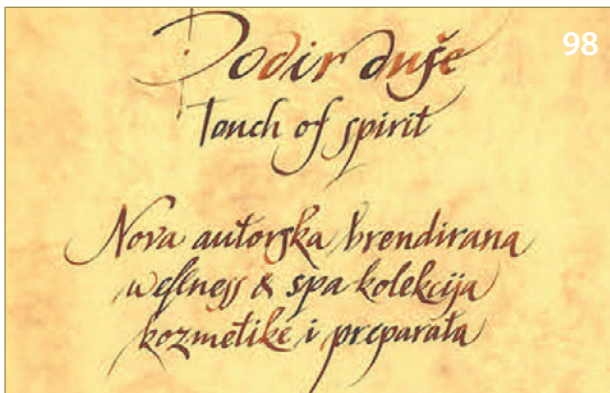 Dodir duše
98
Touch of spirit
Nova autorska brendirana
wellness & spa kolekcija
kozmetike i preparata